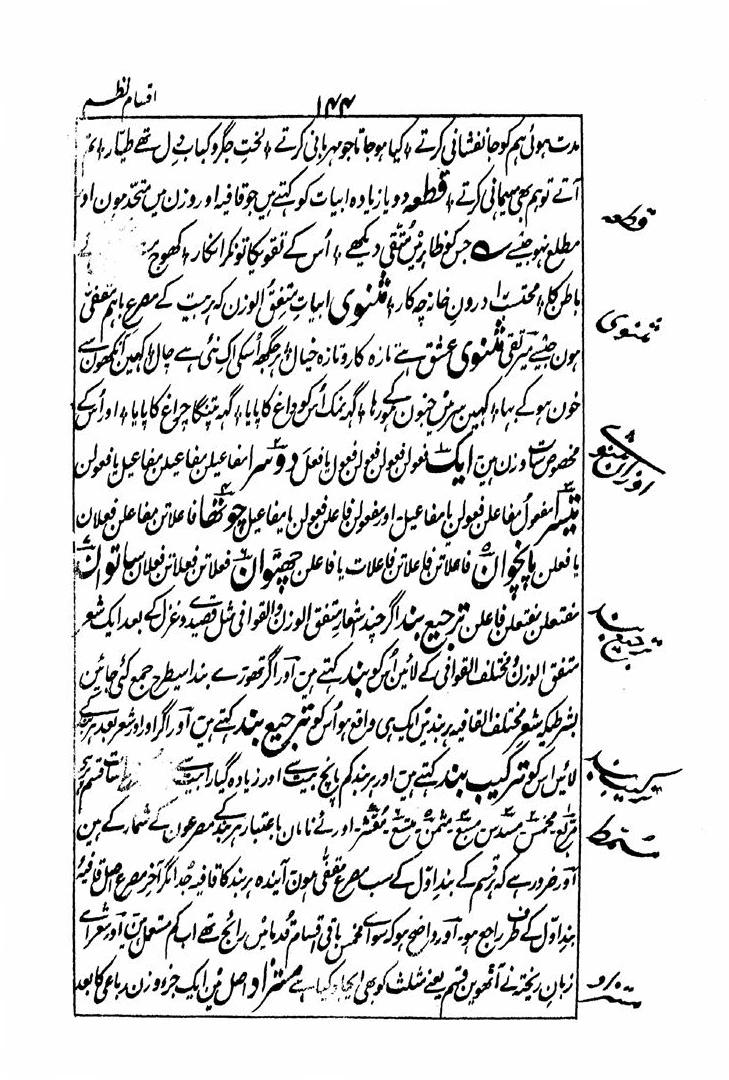 اقسام نظم
۱۴۴
مدت ہوئی ہم کو جانفشانی کرتے ٭ کیا ہو جاتا جو مہربانی کرتے ٭ لخت جگر و کباب دل تھے طیار ٭
آتے تو ہم بھی میہمانی کرتے ٭ قطعہ دو یا زیادہ ابیات کو کہتے ہیں جو قافیہ اور وزن میں متحد ہون اور
قطعہ
مطلع نہو جیسے جس کو ظاہر میں متقی دیکھے ٭ اُس کے تقوی کا تو نکر انکار ٭ کھوج
باطن کا ٭ محتسب را درون خانہ چہ کار ٭ مثنوی ابیات متفق الوزن کہ ہر بیت کے مصرع باہم مقفیٰ
مثنوی
ہون جیسے میر تقی مثنوی عشق ہے تازہ کار و تازہ خیال ٭ ہر جگھ اُسکی اک نئی ہے چال ٭ کہین آنکھون سے
خون ہو کے بہا ٭ کہین سر مین جنون ہو رہا ٭ گہ نمک اُس کو داغ کا پایا ٭ گہ پتنگا چراغ کا پایا ٭ اور اُس کے
مخصوص سات وزن ہین ایک فعولن فعولن فعولن فعول یا فعل دوسرا مفاعیلن مفاعیلن مفاعیل یا فعولن
اوزان مثنوی
تیسرا مفعول مفاعلن فعولن یا مفاعیل اور مفعولن فاعلن فعولن یا مفاعیل چوتھا فاعلاتن مفاعلن فعلان
یا فعلن پانچوان فاعلاتن فاعلاتن فاعلات یا فاعلن چھٹوان فعلاتن فعلاتن فعلان ساتوان
مفتعلن مفتعلن فاعلن ترجیع بند اگر چند اشعار متفق الوزن والقوافی مثل قصیدے و غزل کے بعد ایک شعر
ترجیع بند
متفق الوزن و مختلف القوافی کے لائین اُس کو بند کہتے ہین اور اگر تھوڑے بند اسیطرح جمع کئی جائین
بشرطیکہ شعر مختلف القافیہ ہر بند مین ایک ہی واقع ہو اُس کو ترجیع بند کہتے ہین اور اگر اور اور شعر بعد ہر بند کے
لائین اس کو ترکیب بند کہتے ہین اور ہر بند کم پانچ بیت سے اور زیادہ گیارا بیت سے سات قسم ہے
ترکیب بند
مربع مخمس مسدس مسبع مثمن متسع معشر اور نامان باعتبار ہر بند کے مصرعون کے شمار کے ہین
مسمط
اور ضرور ہے کہ ہر قسم کے بند اول کے سب مصرع مقفیٰ ہون آیندہ ہر بند کا قافیہ جدا مگر آخر مصرع اصل قافیہ
بند اول کے طرف راجع ہو اور واضح ہو کہ سواے مخمس باقی اقسام قدما مین رائج تھے اب کم مستعمل ہین اور شعراے
زبان ریختہ نے آٹھوین قسم یعنے مثلث کو بھی ایجاد کیا ہے مستزاد اصل مین ایک جزو وزن رباعی کا بعد
مستزاد